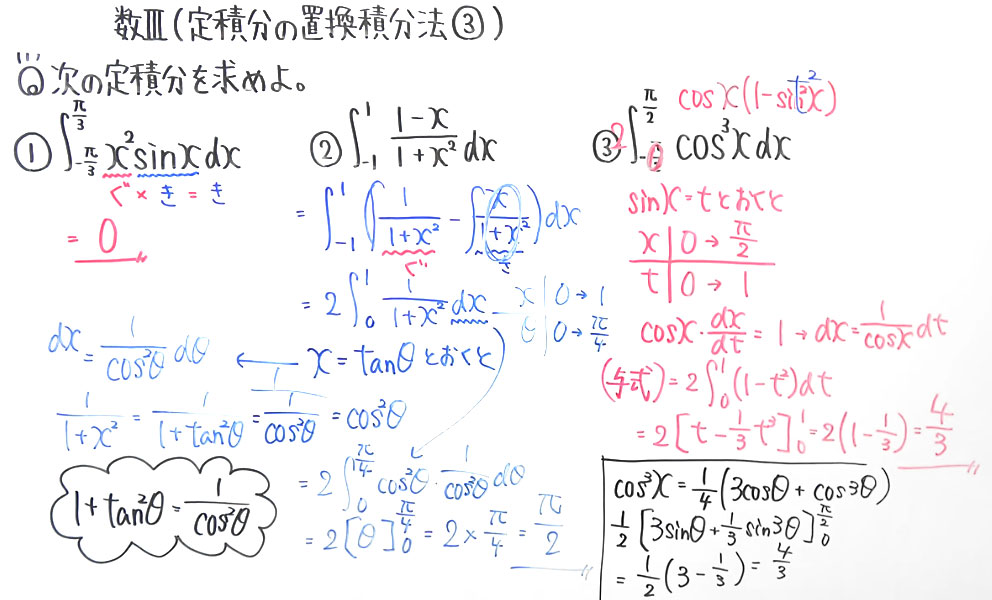 数Ⅲ(定積分の置換積分法③)
Q 次の定積分を求めよ。
① ∫_{-π/3}^{π/3} x² sinx dx
ぐ × き = き
= 0
② ∫_{-1}^{1} (1-x)/(1+x²) dx
= ∫_{-1}^{1} (1/(1+x²) - x/(1+x²)) dx
ぐ き
= 2∫_{0}^{1} 1/(1+x²) dx
x | 0 → 1
θ | 0 → π/4
x = tanθ とおくと
dx = 1/cos²θ dθ
1/(1+x²) = 1/(1+tan²θ) = 1/(1/cos²θ) = cos²θ
1+tan²θ = 1/cos²θ
= 2∫_{0}^{π/4} cos²θ · 1/cos²θ dθ
= 2[θ]_{0}^{π/4} = 2 × π/4 = π/2
cosx(1-sin²x)
t²
③ 2∫_{0}^{π/2} cos³x dx
sinx = t とおくと
x | 0 → π/2
t | 0 → 1
cosx · dx/dt = 1 → dx = 1/cosx dt
(与式) = 2∫_{0}^{1} (1-t²)dt
= 2[t - 1/3 t³]_{0}^{1} = 2(1 - 1/3) = 4/3
cos³x = 1/4(3cosθ + cos3θ)
1/2[3sinθ + 1/3 sin3θ]_{0}^{π/2}
= 1/2(3 - 1/3) = 4/3